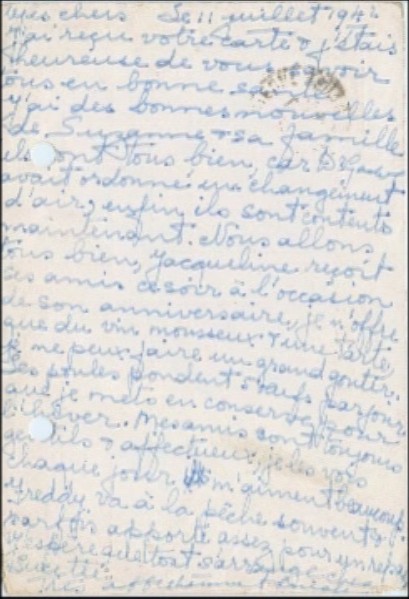 Mes chers Le 11 juillet 1942
J'ai reçu votre carte & j'étais
heureuse de vous savoir
tous en bonne santé
J'ai des bonnes nouvelles
de Suzanne & sa famille
ils sont tous bien, car
avait ordonné un changement
d'air, enfin ils sont contents
maintenant. Nous allons
tous bien, Jacqueline reçoit
ses amis ce soir à l'occasion
de son anniversaire, je n'offre
que du vin mousseux & une tarte
je ne peux faire un grand goûter.
Les poules pondent oeufs par jour
que je mets en conserve pour
l'hiver. Mes amis sont toujours
gentils & affectueux, je les vois
chaque jour m'aiment beaucoup.
Freddy va à la pêche souvent &
parfois apporte assez pour un repas
J'espère que tout s'arrange chez